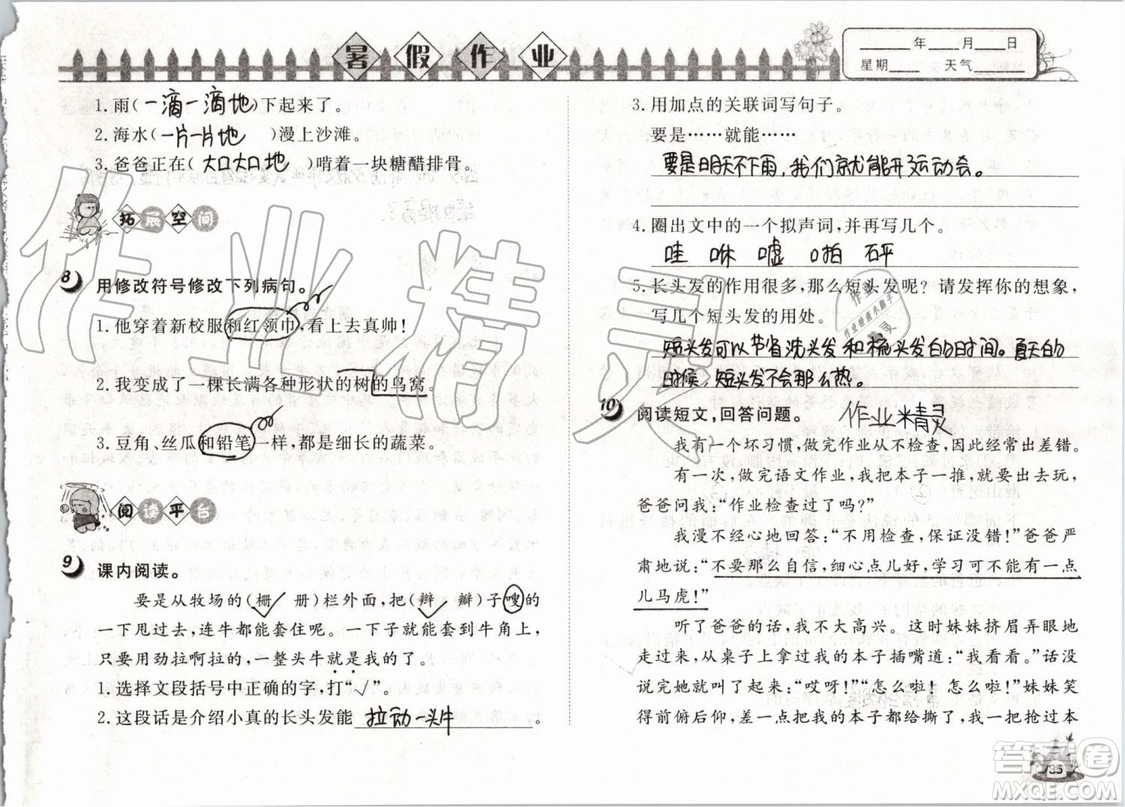 暑假作业
____年____月____日
星期____ 天气____
1. 雨(一滴一滴地)下起来了。
2. 海水(一片一片地)漫上沙滩。
3. 爸爸正在(大口大口地)啃着一块糖醋排骨。
拓展空间
8 用修改符号修改下列病句。
1. 他穿着新校服和红领巾,看上去真帅!
2. 我变成了一棵长满各种形状的树的鸟窝。
3. 豆角、丝瓜和铅笔一样,都是细长的蔬菜。
阅读平台
9 课内阅读。
要是从牧场的(栅 册)栏外面,把(辩 辫)子嗖的
一下甩过去,连牛都能套住呢。一下子就能套到牛角上,
只要用劲拉啊拉的,一整头牛就是我的了。
1. 选择文段括号中正确的字,打“√”。
2. 这段话是介绍小真的长头发能 拉动一头牛 。
3. 用加点的关联词写句子。
要是……就能……
要是明天不下雨,我们就能开运动会。
4. 圈出文中的一个拟声词,并再写几个。
哇 咻 嘘 啪 砰
5. 长头发的作用很多,那么短头发呢?请发挥你的想象,
写几个短头发的用处。
短头发可以节省洗头发和梳头发的时间。夏天的
时候,短头发不会那么热。
10 阅读短文,回答问题。
作业精灵
我有一个坏习惯,做完作业从不检查,所以经常出差错。
有一次,做完语文作业,我把本子一合,就准备玩了。
爸爸问我:“作业检查过了吗?”
我漫不经心地回答:“不用检查,保证没错!”爸爸严
肃地说:“不要那么自信,细心点儿好,学习可不能有一点
儿马虎!”
听了爸爸的话,我不大高兴。这时妹妹挤眉弄眼地
走过来,从桌子上拿过我的本子插嘴道:“我看看。”话
没说完,她就大叫起来:“哎呀!”“怎么啦!怎么啦!”妹妹笑
得前俯后仰,差一点把我的本子都给撕了,我一把抢过本
35
作业精灵
答案圈
MXQE.COM